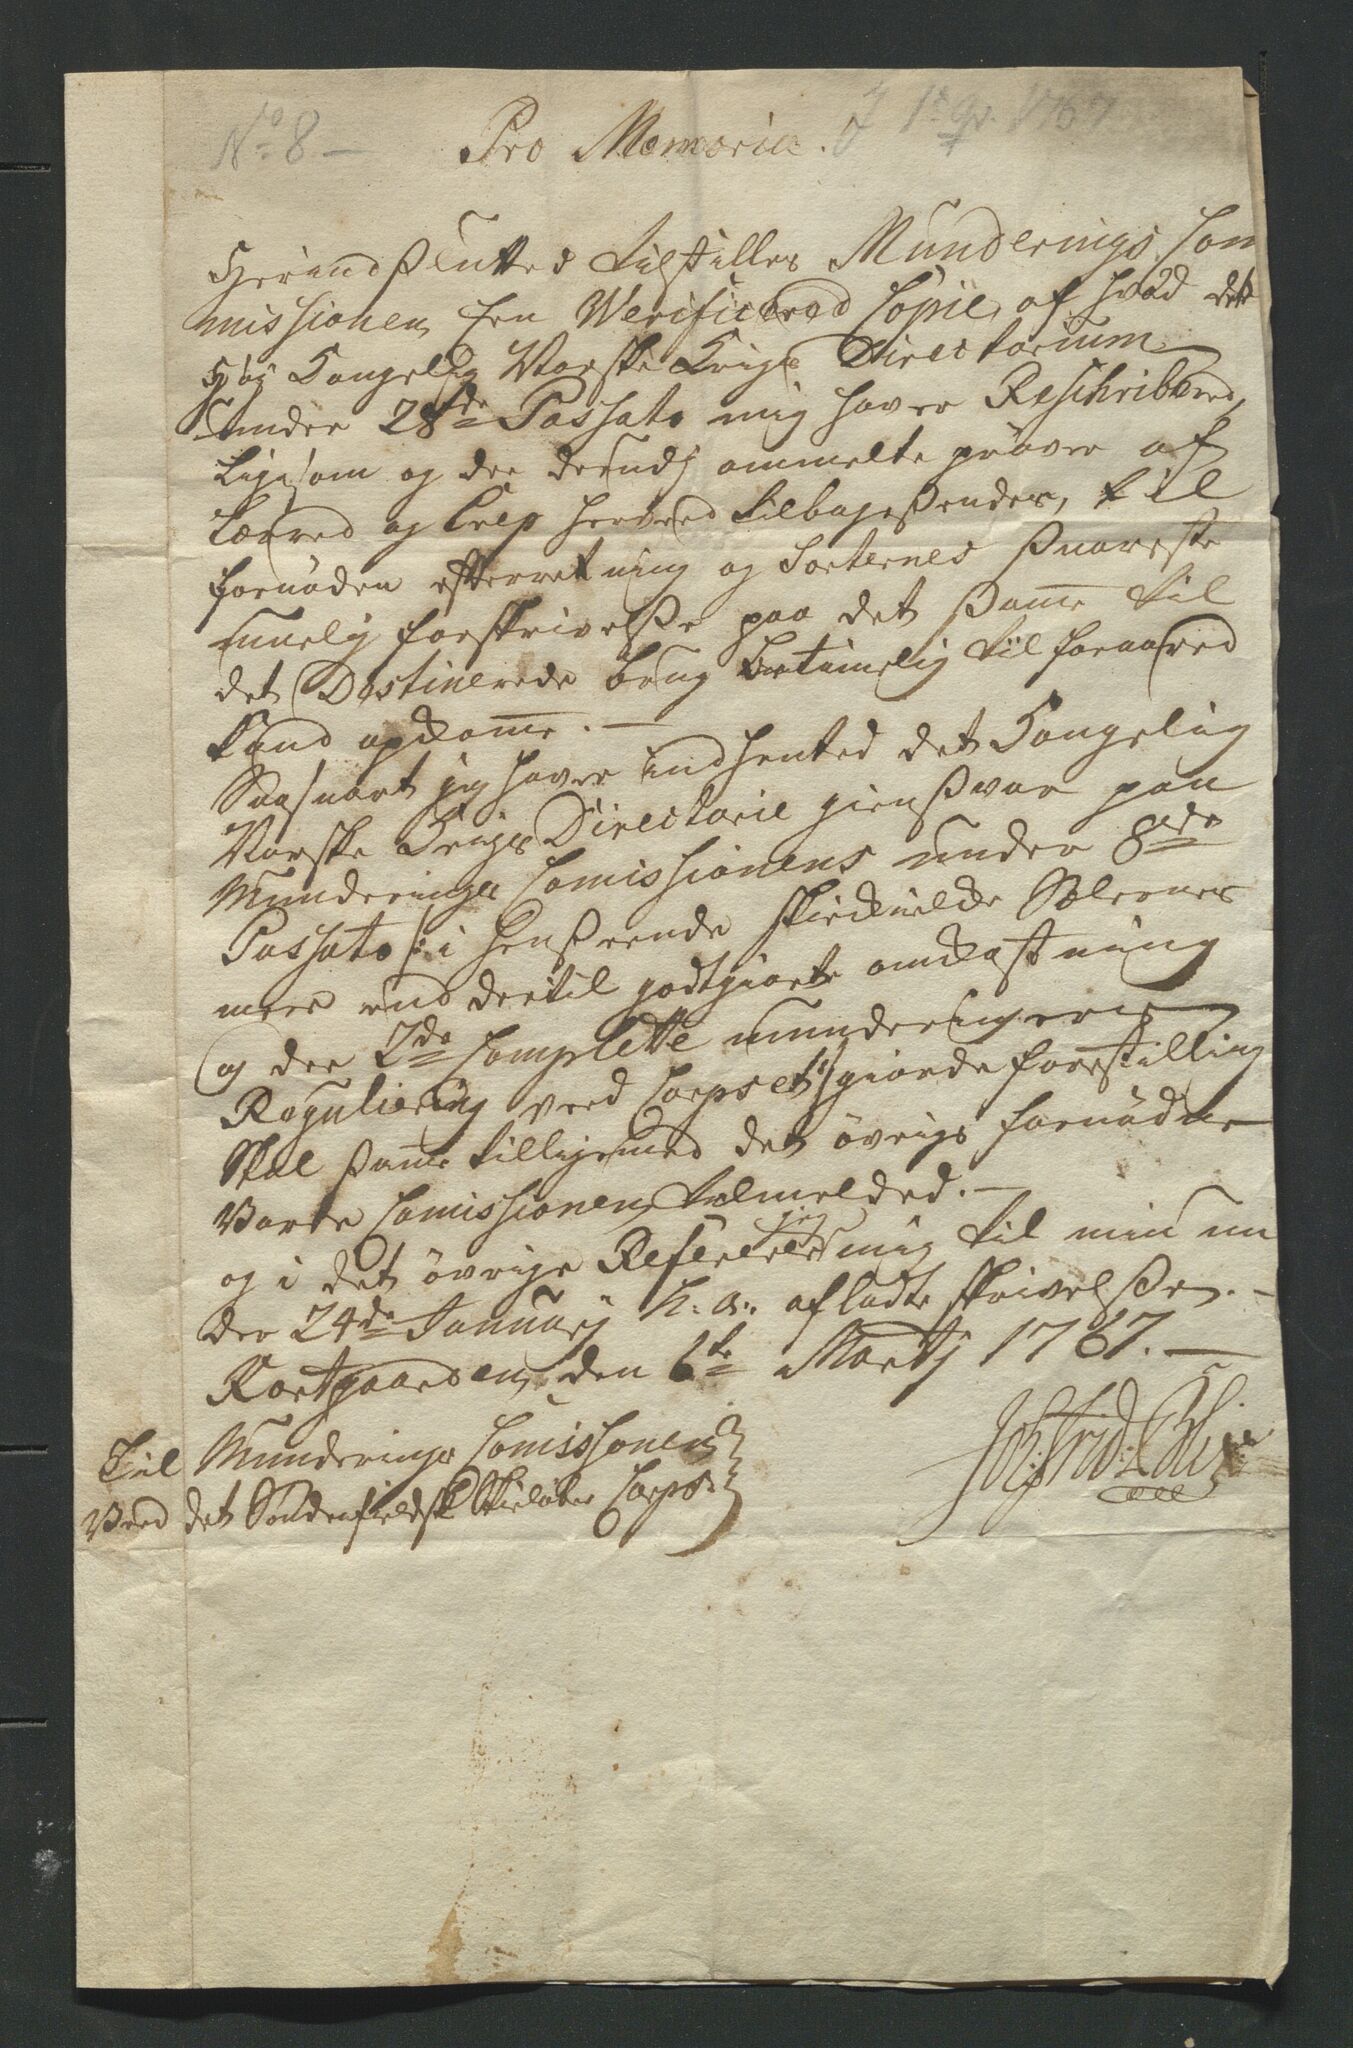 No 8.— Pro Memoria. J 1te Qv. 1767
Herindslutted tilstilles Munderings Com
missionen een Verificered Copie, af hvad dette
Høy Kongelig Norske Krigs Directorium
under 28de Passato mig haver Reschribered,
Ligesom og dee derudj ommelte prøver af
Lærred og Crep herved tilbagesendes, til
fornøden efterretning og Sorternes snareste
muelig forskrivelse paa det samme til
det Destinerede brug betimelig til foraared
kand opkomme. —
Saasnart jeg haver indhented det Kongelig
Norske Krigs Directorie giensvar paa
Munderings Comissionens under 8de
Passato /: i henseende skindkuelde Sælernes
meer end dertil godtgiorte omkastning
og dee 2de Complette munderingers
Regulering ved Corpset :/ giorde forestilling
Skal samme tilligemed det øvrige fornødne
Vorde Comissionen tilmelded. —
og i det øvrige Refererer jeg mig til min un
der 24de Januarj h: a: afladte skrivelse. —
Kortgaarden, den 6te Martj 1767. —
Til Munderings Comissionen
Ved det Søndenfieldske Skieløber Corps.